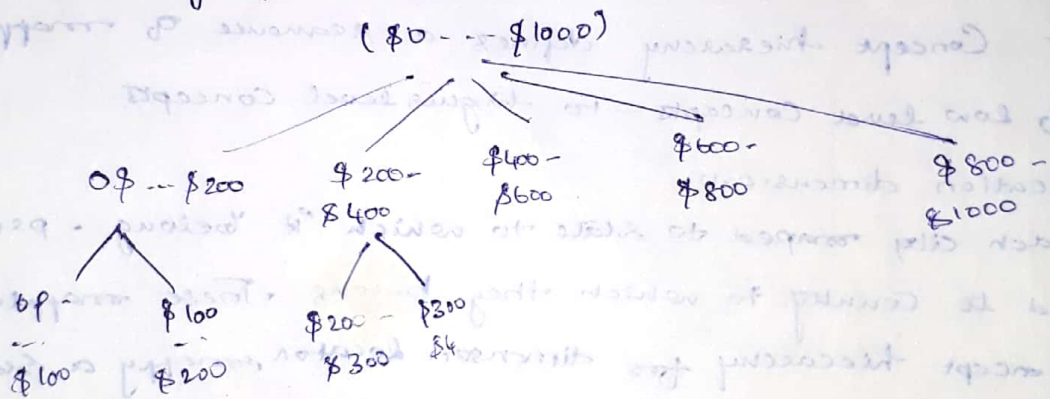 ($0 - - - $1000)
0$ --- $200
$200-
$400
$400-
$600
$600-
$800
$800-
$1000
$100
$100
$200
$200 -
$300
$300
$4